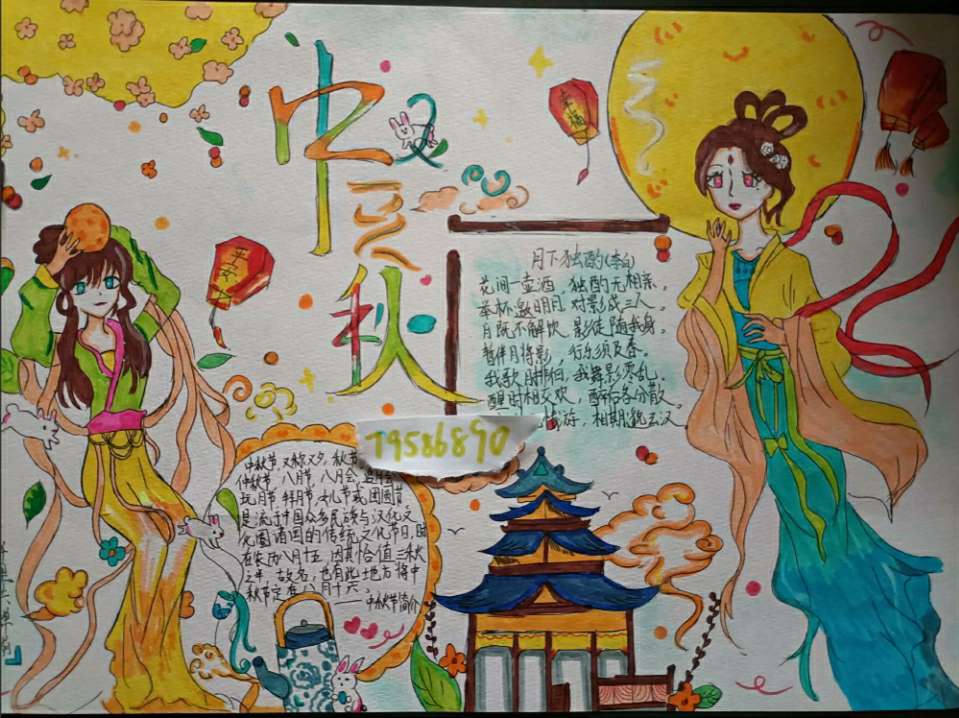 中秋
幸福
平安
月下独酌(李白)
花间一壶酒，独酌无相亲。
举杯邀明月，对影成三人。
月既不解饮，影徒随我身。
暂伴月将影，行乐须及春。
我歌月徘徊，我舞影零乱。
醒时相交欢，醉后各分散。
游，相期邈云汉
79586890
中秋节，又称夕，秋节
仲秋节，八月节，八月会，追月
玩月节，拜月节，女儿节或团圆节
是流行于中国众多民族与汉化文
化圈诸国的传统文化节日，时
在农历八月十五，因其恰值三秋
之半，故名，也有些地方将中
秋节定在八月十六。
——中秋节简介